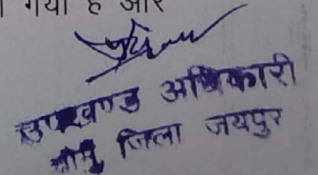 गया है और
उपखण्ड अधिकारी
चौमूं जिला जयपुर